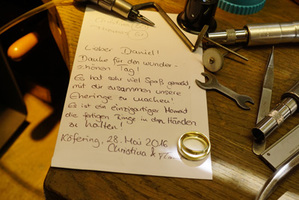 Lieber Daniel!
Danke für den wunder-
schönen Tag!
Es hat sehr viel Spaß gemacht,
mit dir zusammen unsere
Eheringe zu machen!
Es ist ein einzigartiger Moment
die fertigen Ringe in den Händen
zu halten!
Köfering, 28. Mai 2016
Christina &